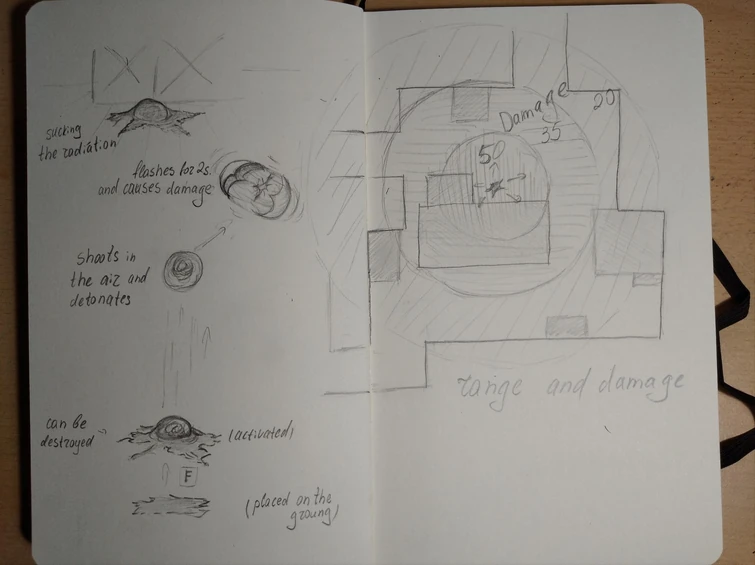 sucking
the radiation
flashes for 2s.
and causes damage
shoots in
the air and
detonates
can be
destroyed
(activated)
F
(placed on the
groung)
Damage
20
35
50
range and damage